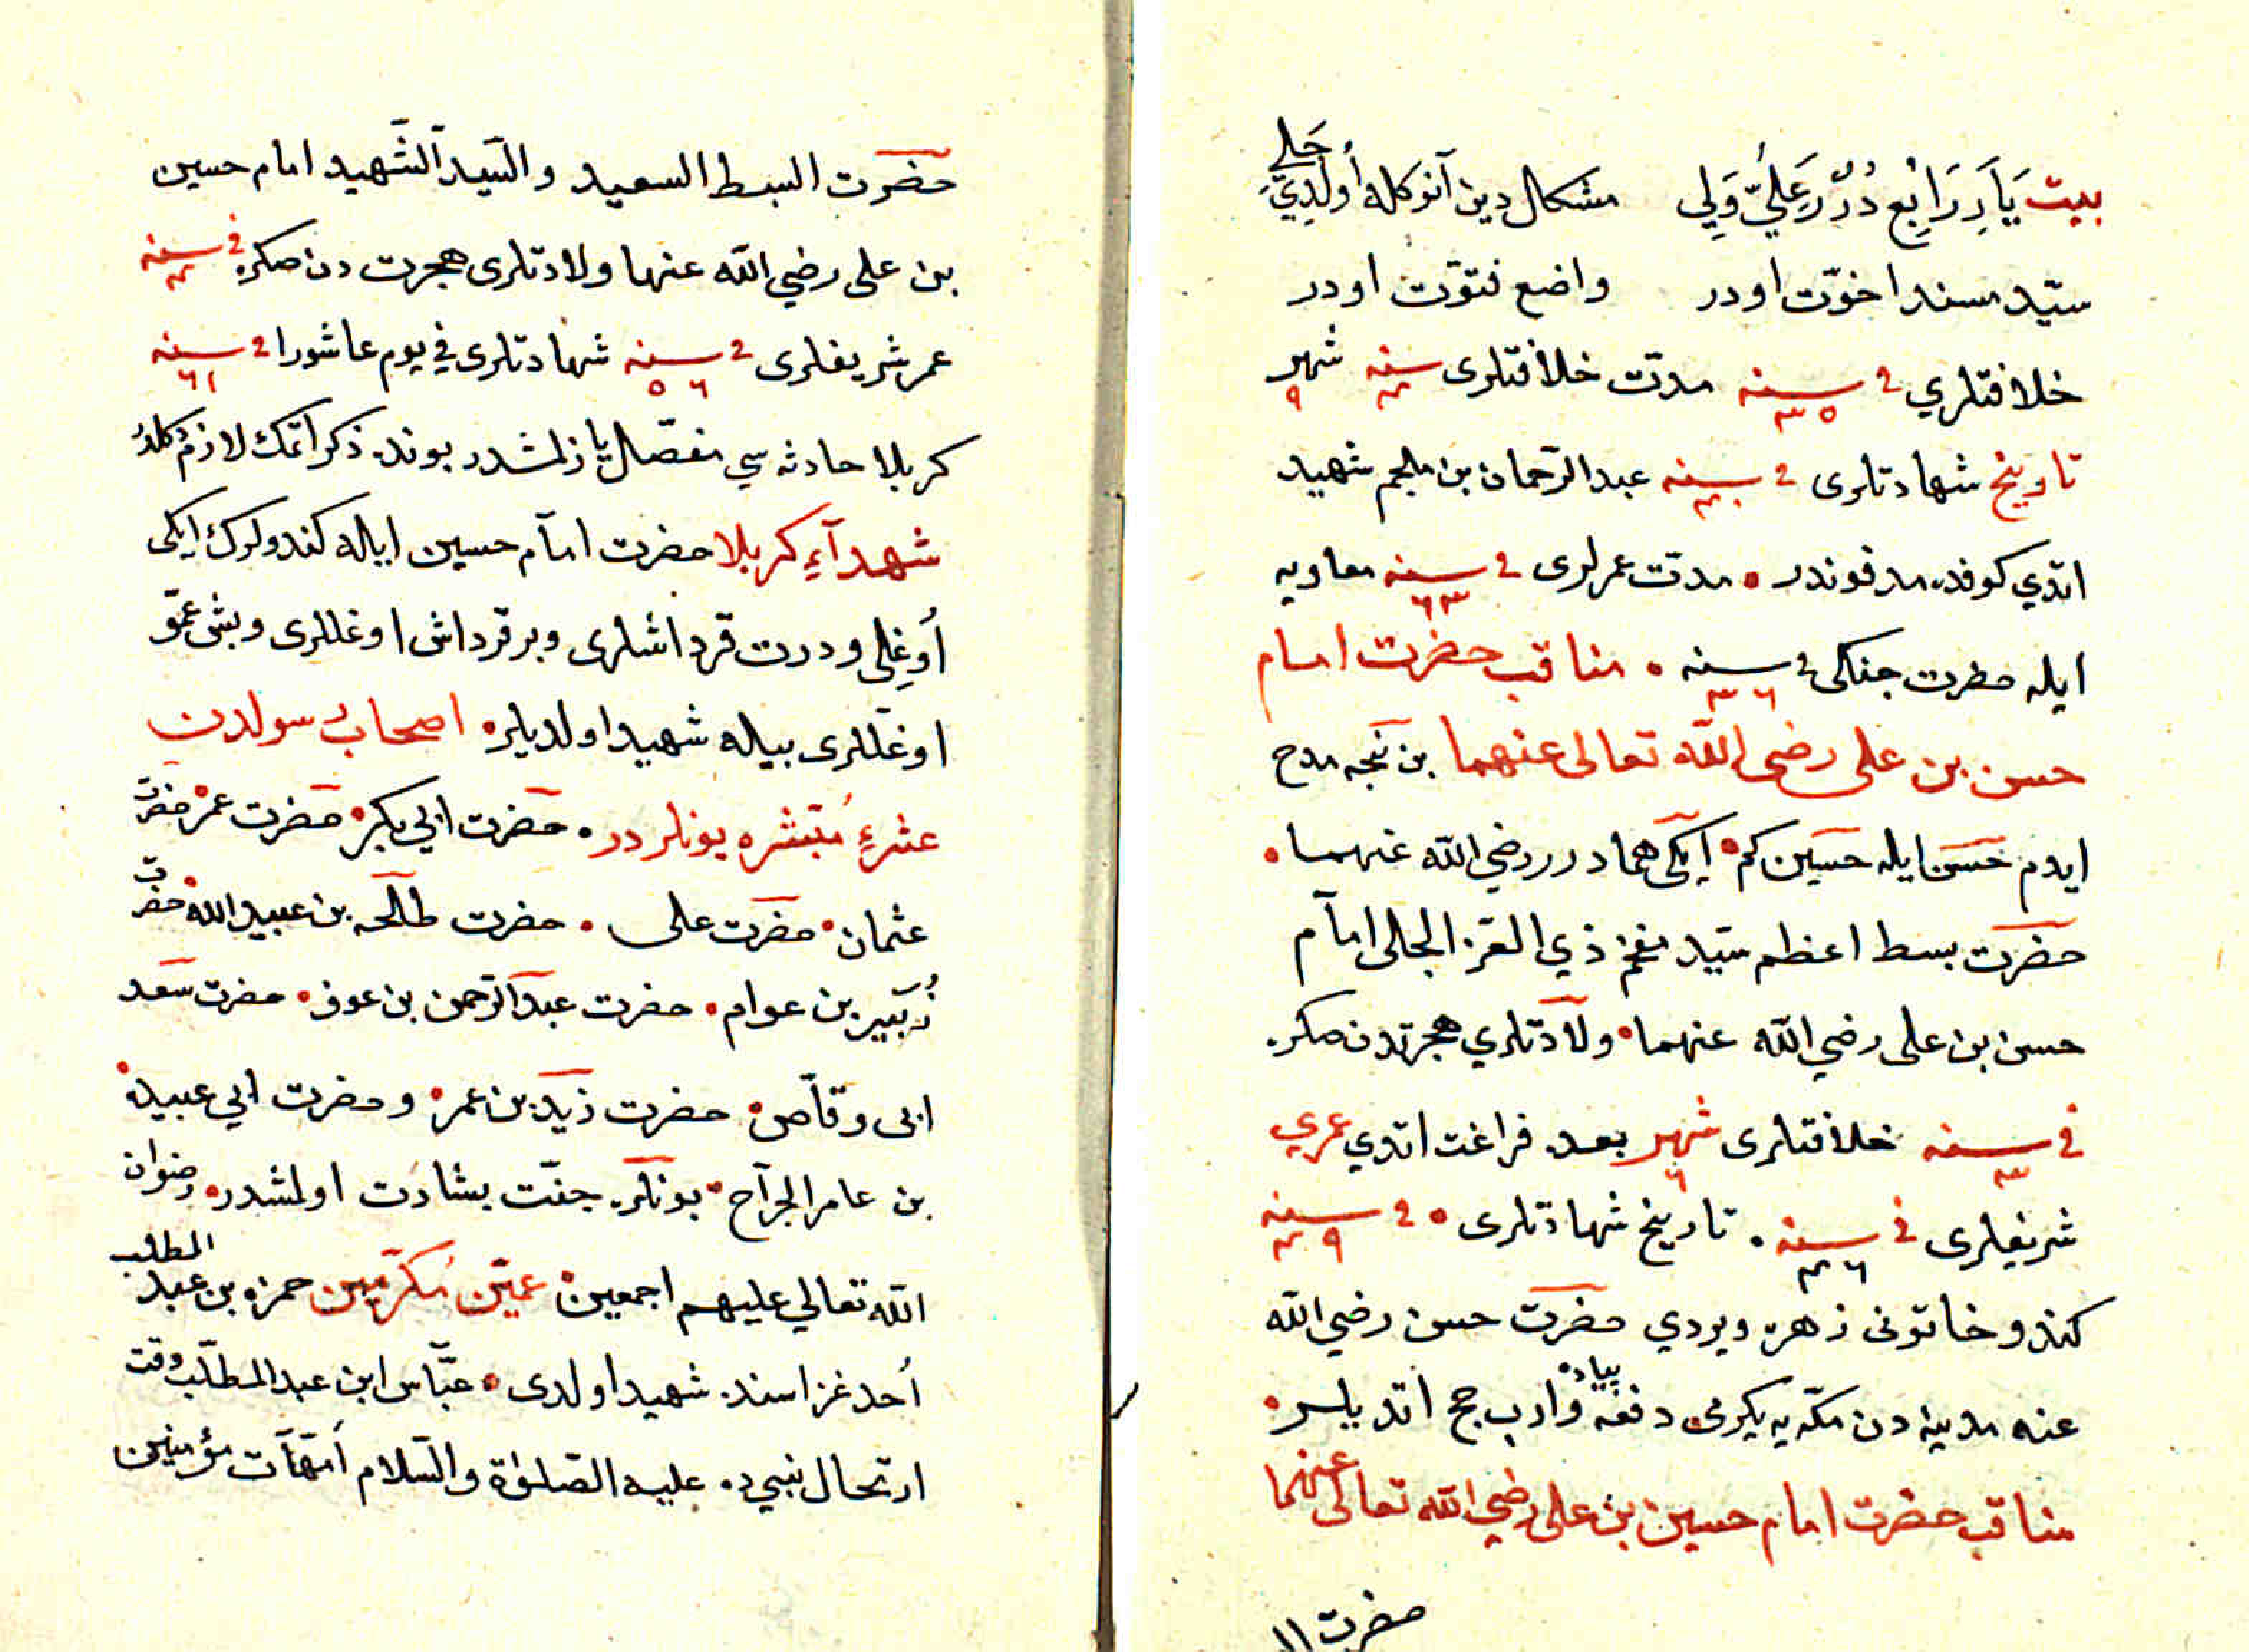 بيت يَارِ رَابِع دُرّر عَلِيّ وَلِي مشكال دين آنوكله أولدي جَلِي
سيّد مسند اخوّت اودر واضع فتوّت اودر
خلافتلري في سنه ٣٥ مدّت خلافتلرى سنه ٤ شهر ٩
تاريخ شهادتلرى في سنه ٤٠ عبد الرّحمان بن ملجم شهيد
اتدي كوفه‌ده مدفوندر • مدّت عمرلرى في سنه ٦٣ معاويه
ايله حضرت جنكى في سنه ٣٦ • مناقب حضرت امام
حسن بن على رضى الله تعالى عنهما بن نيجه مدح
ايدم حسن ايله حسين كم • ايكى همادرر رضي الله عنهما •
حضرت بسط اعظم سيّد مفخم ذي القرّ الجلى امام
حسن بن على رضي الله عنهما • ولادتلري هجرتدن صكره
في سنه ٣ خلافتلرى شهر ٦ بعده فراغت اتدي عمري
شريفلرى في سنه ٤٦ • تاريخ شهادتلرى • في سنه ٤٩
كندو خاتونى زهر ويردي حضرت حسن رضي الله
عنه مدينه دن مكّه يه يكرمى دفعه پياده وارب حج اتديلر •
مناقب حضرت امام حسين بن على رضي الله تعالى عنهما
حضرت ١١
حضرت السبط السعيد والسّيد الشّهيد امام حسين
بن على رضي الله عنهما ولادتلرى هجرت دن صكره في سنه ٤
عمر شريفلرى في سنه ٥٦ شهادتلرى في يوم عاشورا في سنه ٦١
كربلا حادثه سي مفصّل يازلمشدر بونده ذكر اتمك لازم دكلدُ
شهدآءِ كربلا حضرت امام حسين ايله كندولرك ايكى
أوغلي ودرت قرداشلرى وبر قرداش اوغللرى وبش عمّو
اوغللرى بيله شهيد اولديلر • اصحاب رسولدن
عشرءِ مُبشّره بونلردر • حضرت ابي بكر • حضرت عمر • حضرت
عثمان • حضرت على • حضرت طلحه بن عبيد الله • حضرت
زُبير بن عوام • حضرت عبد الرّحمن بن عوف • حضرت سعد
ابى وقّاص • حضرت زيد بن عمر • وحضرت ابي عبيده •
بن عامر الجرّاح • بونلره جنّت بشارت اولمشدر • رضوان
الله تعالي عليهم اجمعين • عمّين مُكرّمين حمزه بن عبد المطلب
أحد غزاسنده شهيد اولدى • عبّاس ابن عبد المطلّب وقت
ارتحال نبيده عليه الصّلوٰة والسّلام أمّهات مؤمنين